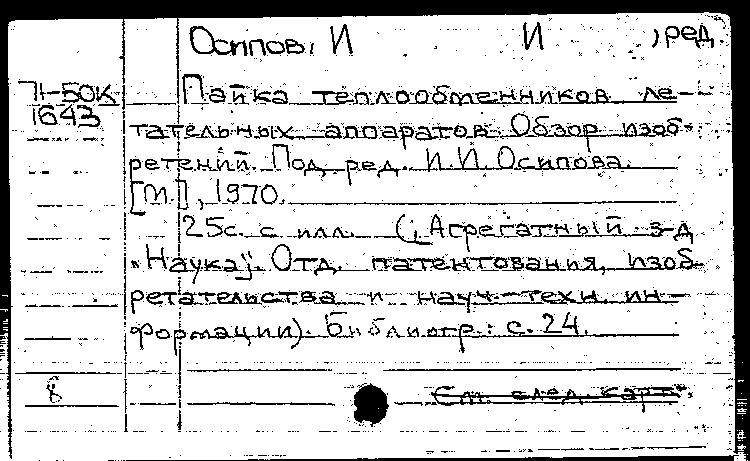 Осипов, И И , ред.
71-50К
1643
Пайка теплообменников ле-
тательных аппаратов. Обзор изоб-
ретений. Под ред. И.И. Осипова.
[М.], 1970.
25с. с илл. ([Агрегатный з-д
"Наука]". Отд. патентования, изоб-
ретательства и науч.-техн. ин-
формации). Библиогр.: с. 24.
8
См. след. карт.